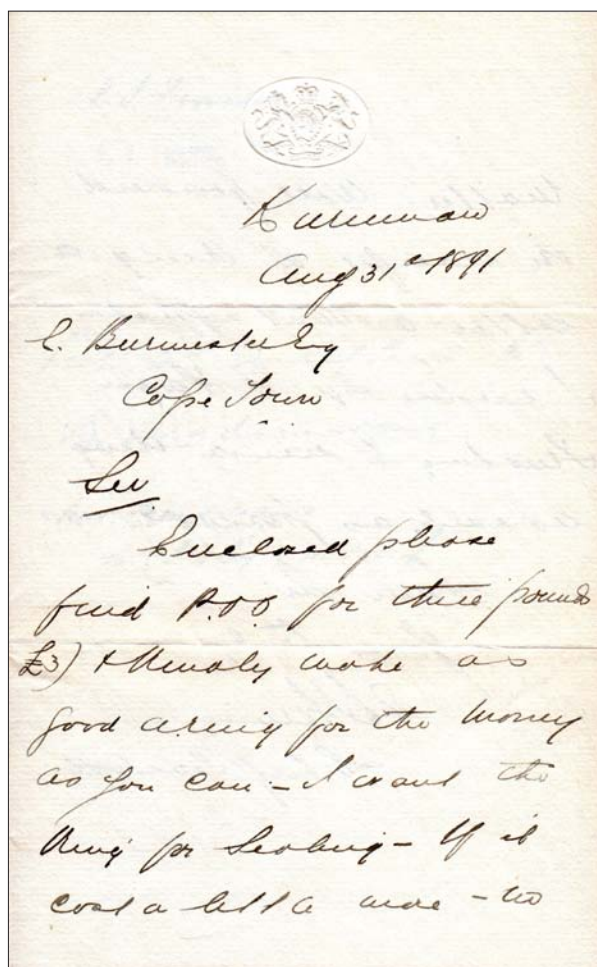 Kuruman
Aug 31st 1891
C. Burmester Esq
Cape Town
Sir
Enclosed please
find P.O.O. for three pounds
£3) & kindly make as
good a ring for the money
as you can - I want the
Ring for Sealing - If it
cost a little more - no